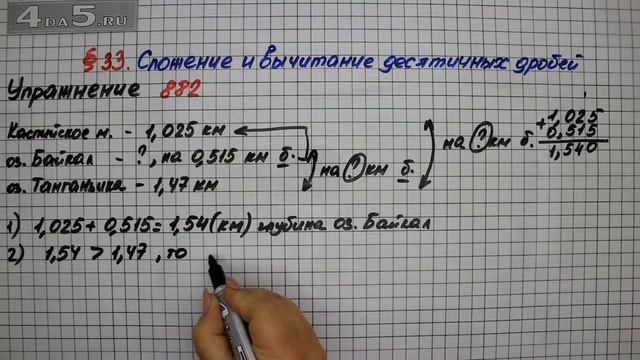 4DA5.RU
§ 33. Сложение и вычитание десятичных дробей
Упражнение 882
Каспийское м. - 1,025 км
оз. Байкал - ?, на 0,515 км б.
оз. Танганьика - 1,47 км
на ? км б.
на ? км б.
+1,025
0,515
1,540
1) 1,025 + 0,515 = 1,54 (км) глубина оз. Байкал
2) 1,54 > 1,47, то